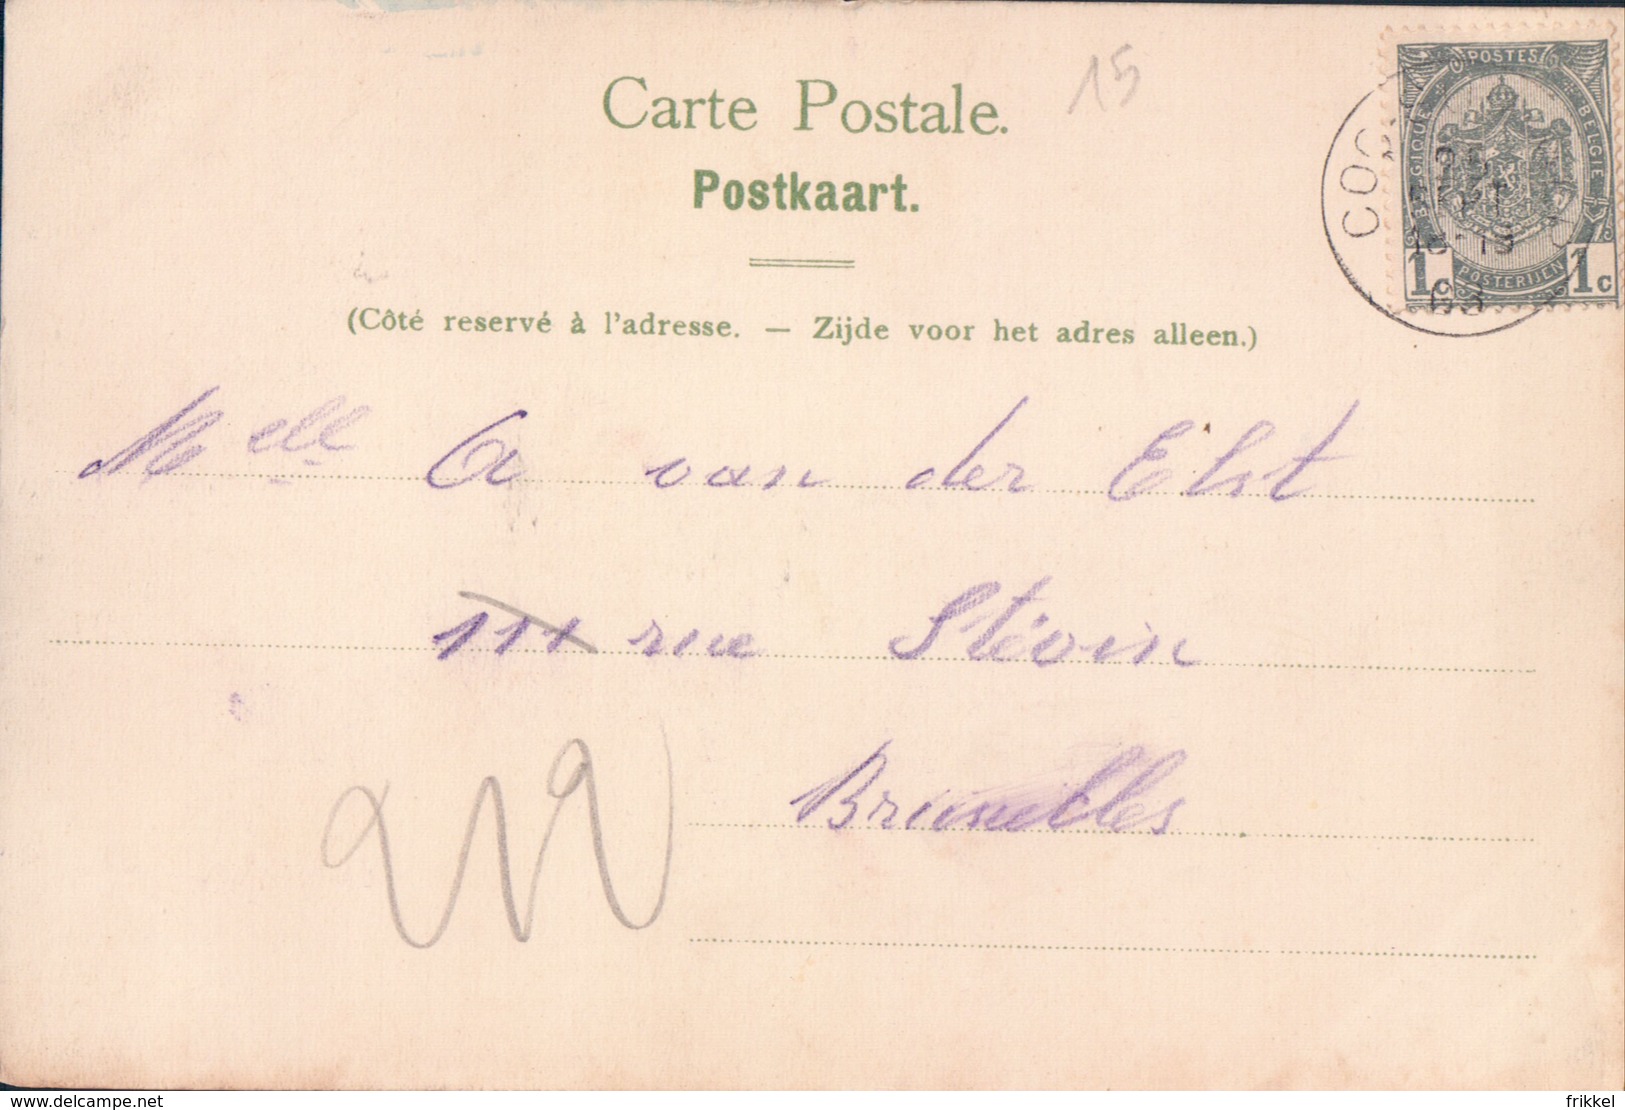 15
Carte Postale.
Postkaart.
(Côté reservé à l'adresse. — Zijde voor het adres alleen.)
POSTES
BELGIQUE
BELGIE
1
POSTERIJEN
1c
COO
03
Melle A van der Elst
111 rue Stévin
Bruxelles
delcampe.net
frikkel